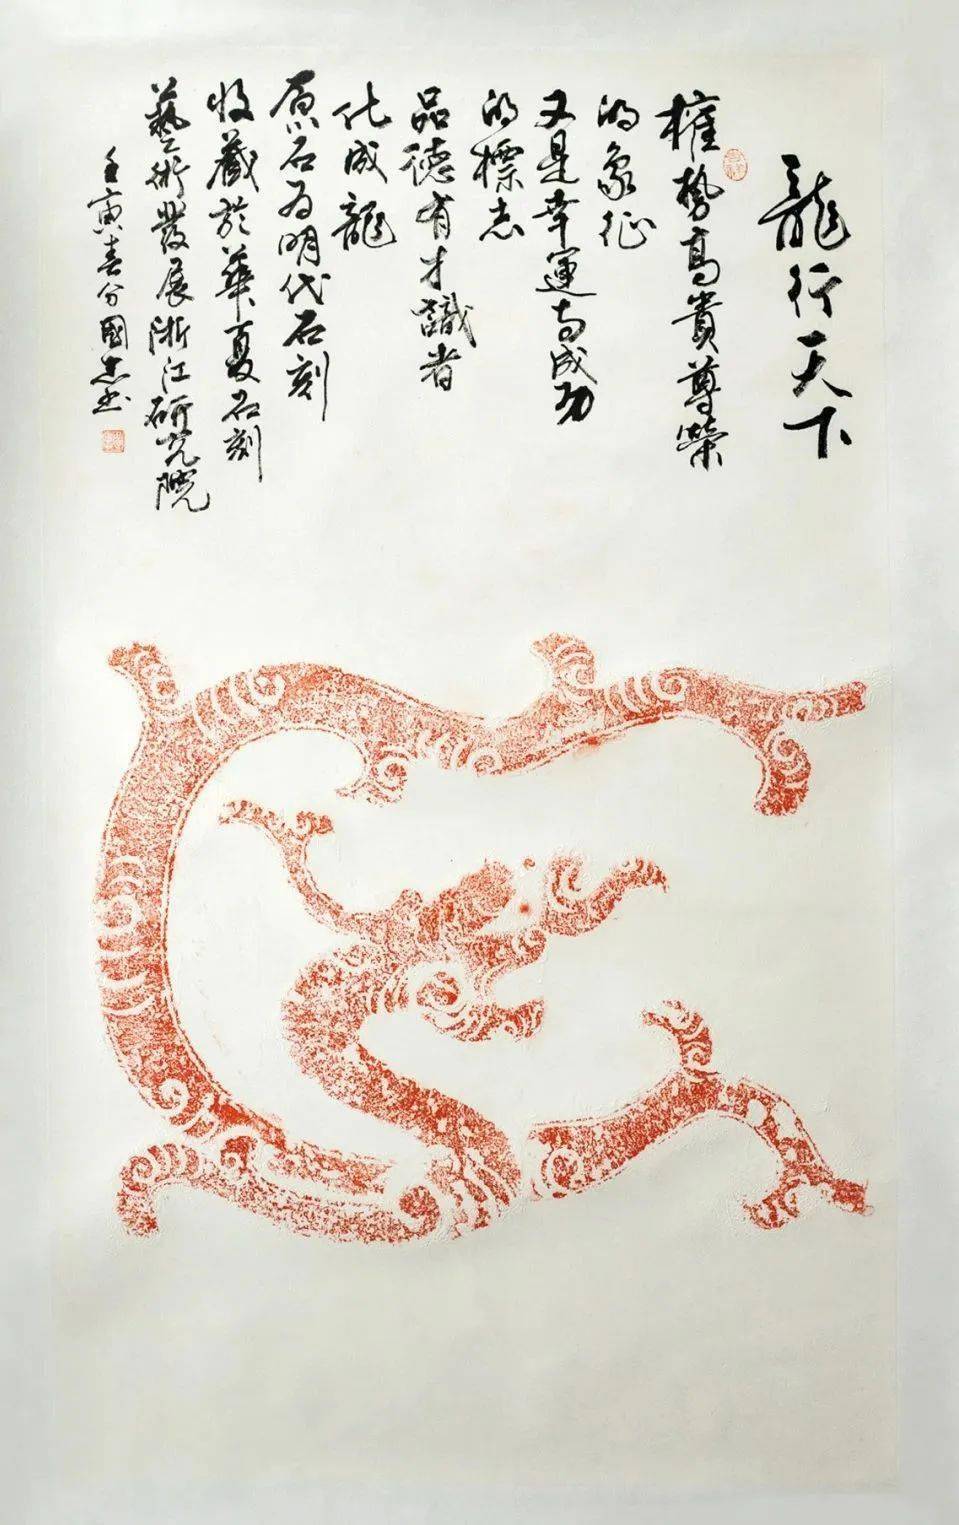 龍行天下
權勢高貴尊榮
的象征
又是幸運与成功
的標志
品德有才識者
化成龍
原石為明代石刻
收藏於華夏石刻
藝術發展浙江研究院
壬寅春分國忠書